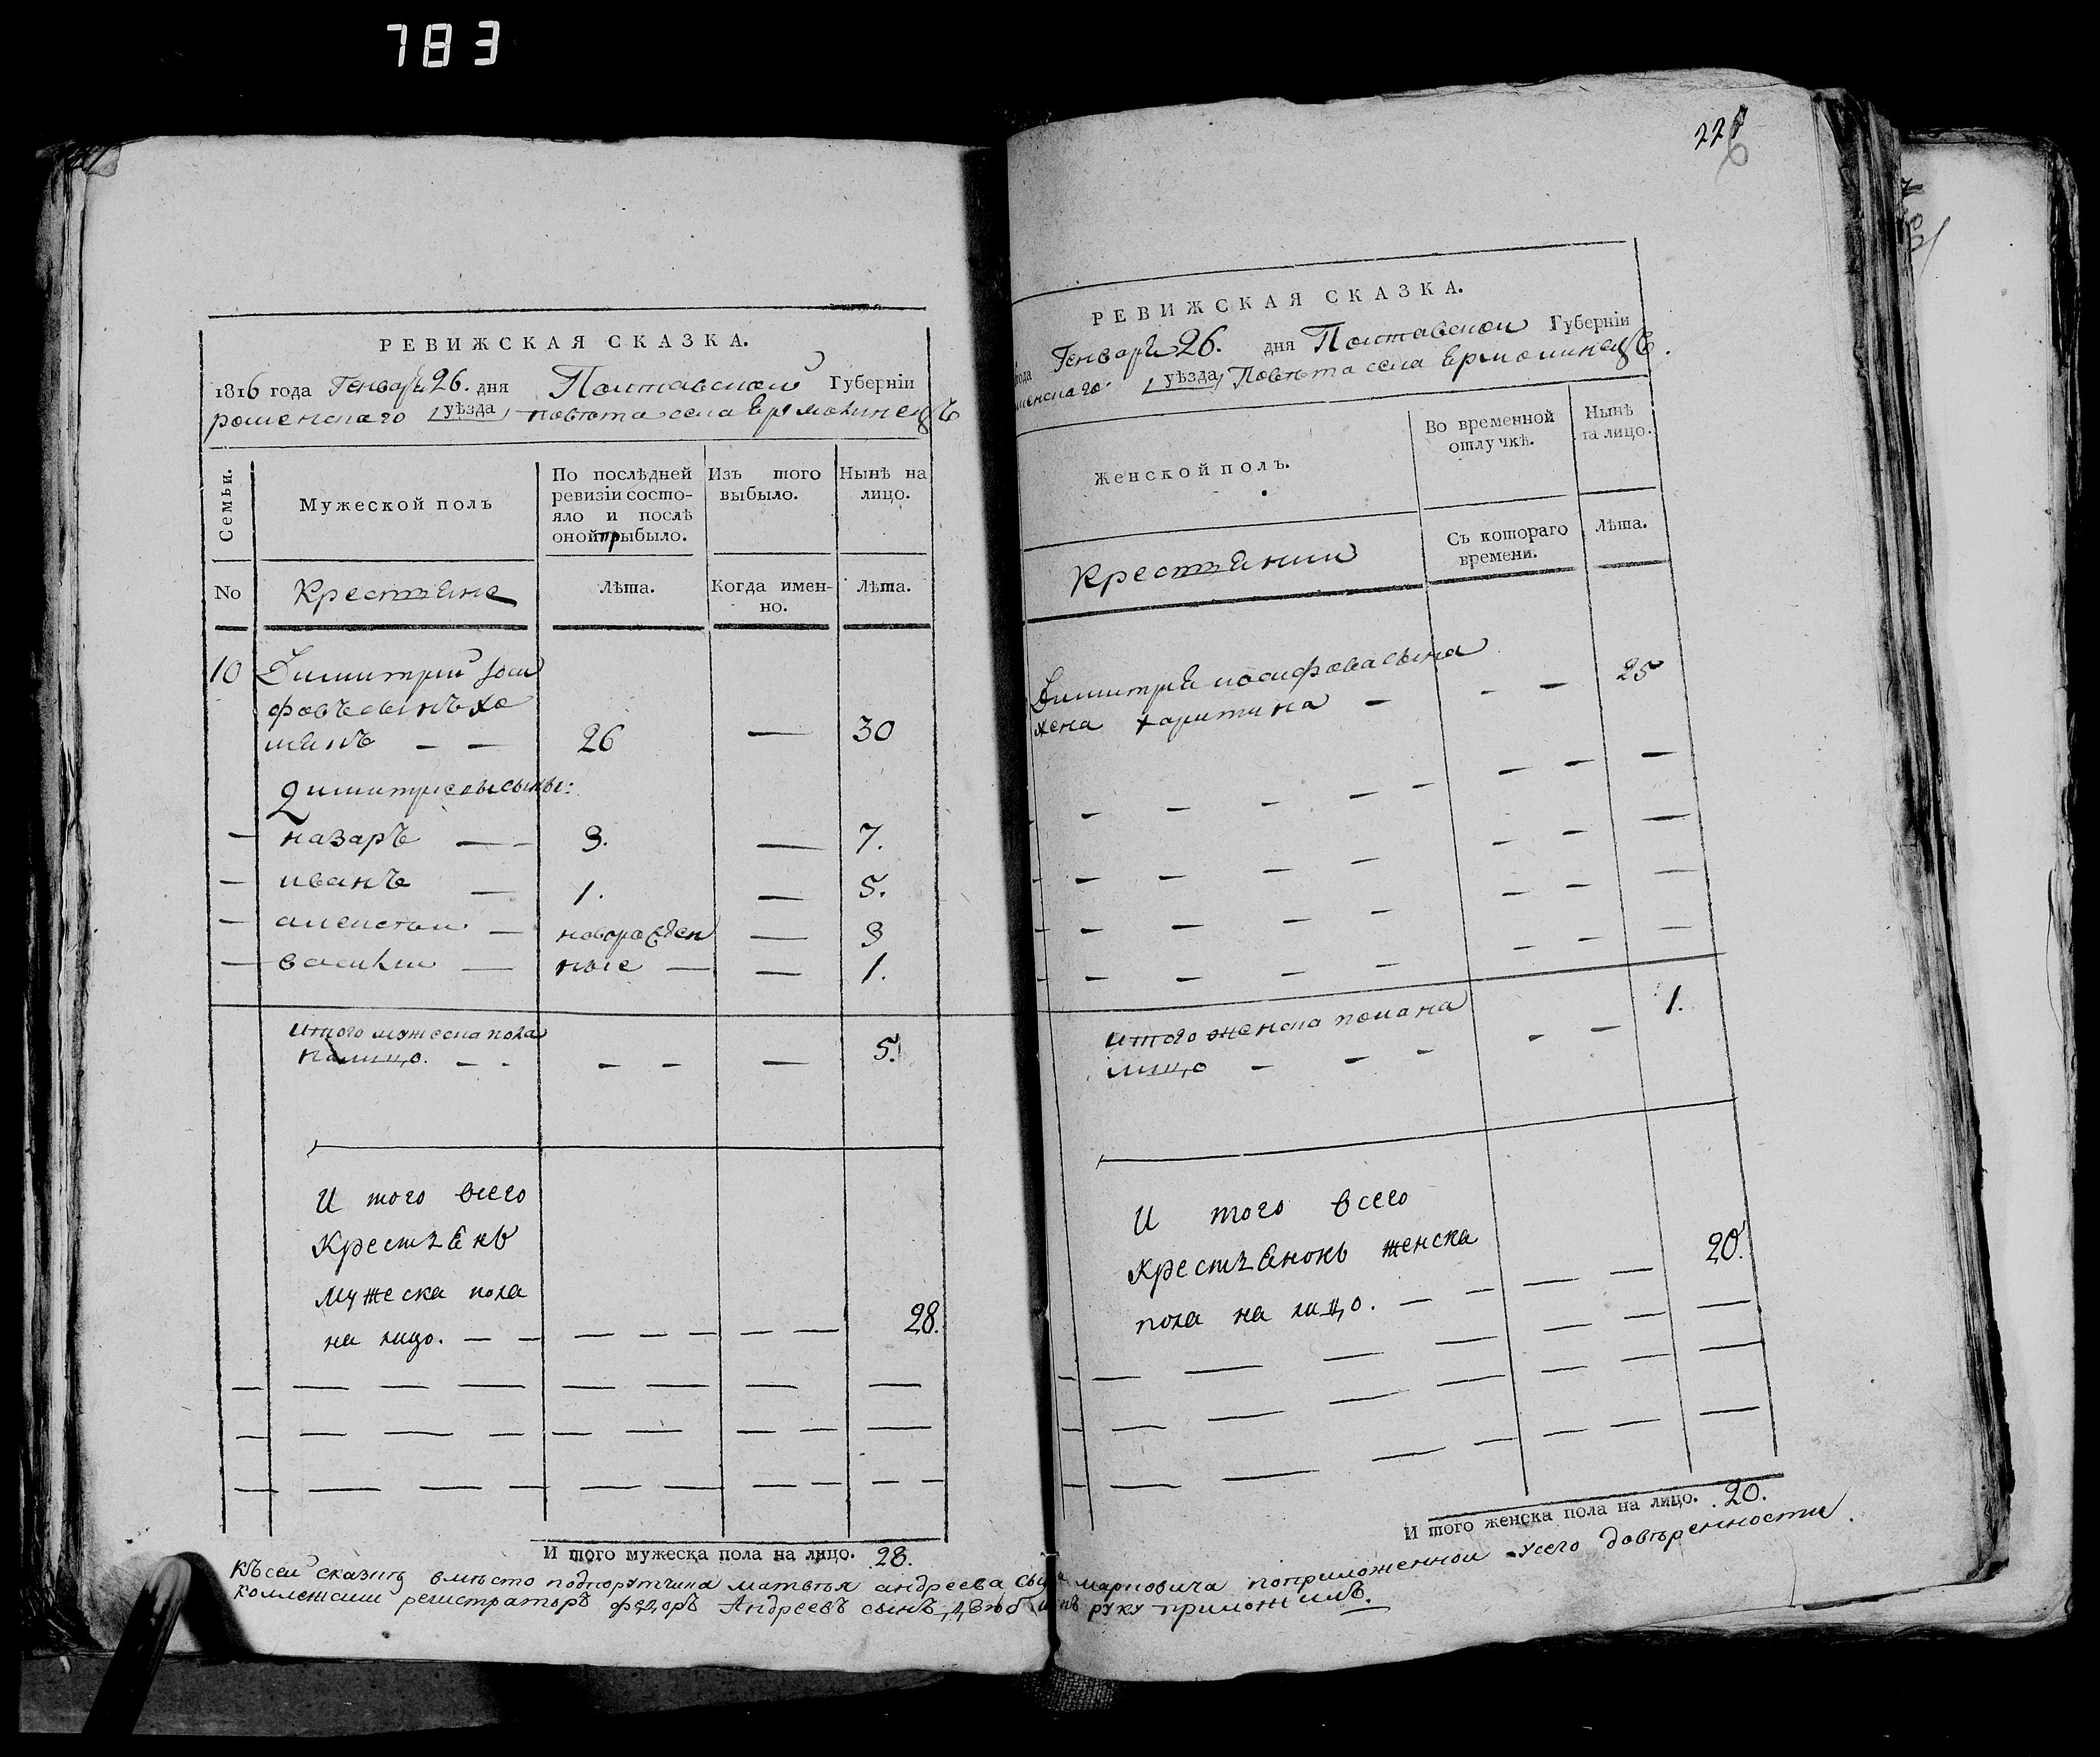 783
226
РЕВИЖСКАЯ СКАЗКА.
1816 года Генваря 26. дня Полтавской Губерніи
роменского уѣзда повѣта села Ярмолинецъ
Семьи.
Мужеской полъ
По послѣдней ревизіи состо-
яло и послѣ
оной прибыло.
Изъ того
выбыло.
Нынѣ на
лицо.
No
Крестьяне
Лѣта.
Когда имен-
но.
Лѣта.
10 Димитрий Иоси
фовъ сынъ хо
менъ — — 26 — 30
Димитриевы сыны:
— назаръ — - 3. — 7.
— иванъ — 1. — 5.
— алексѣй — новорожден — 3
— василий — ные — — 1.
итого мужеска пола
налицо. — - - - — 5.
И того всего
Крестьянъ
мужеска пола
на лицо. — — — — — — — 28.
И того мужеска пола на лицо. 28.
РЕВИЖСКАЯ СКАЗКА.
года Генваря 26. дня Полтавской Губерніи
менского уѣзда Повѣта села Ермолинецъ.
Женской полъ.
Во временной
отлучкѣ.
Нынѣ
на лицо.
Крестьянки
Съ котораго
времени.
Лѣта.
Димитрия иосифова сына
жена харитина — - — 25
итого женска пола на
лицо - - - - — 1.
И того всего
Крестьянокъ женска
пола на лицо. — — — — 20.
И того женска пола на лицо. 20.
Къ сей сказкѣ вмѣсто подпорутчика матвѣя андреева сына марковича по приложенной у сего довѣренности
коллежский регистраторъ федоръ Андреевъ сынъ руку приложилъ.